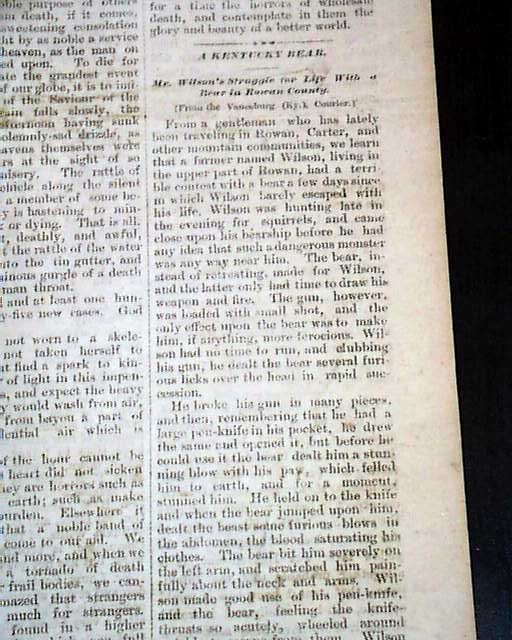 ble purpose of others
an death, if it comes,
sweetening consolation
ht by as noble a service
heaven, as the man on
ed upon. To die for
ate the grandest event
of our globe, it is to imi-
of the Saviour of the
rain falls slowly, the
afternoon having sunk
solemnly-sad drizzle, as
eavens themselves were
rs at the sight of so
misery. The rattle of
ehicle along the silent
a member of some be-
y is hastening to min-
g or dying. That is all,
t, deathly, and awful,
t the rattle of the water
into the tin gutter, and
ainous gurgle of a death
man throat.
and at least one hun-
y-five new cases. God
not worn to a skele-
not taken herself to
at find a spark to kin-
of light in this impen-
s, and expect the heavy
y would wash from air,
from beyon a part of
lential air which is
of the hour cannot be
s heart did not sicken
hey are horrors such as
earth; such as make
burden. Elsewhere if
that a noble band of
come to our aid. We
and more, and when we
a tornado of death
frail bodies, we can-
mazed that strangers
much for strangers.
found in a higher
for a time the horrors of wholesale
death, and contemplate in them the
glory and beauty of a better world.
A KENTUCKY BEAR.
Mr. Wilson's Struggle for Life With a
Bear in Rowan County.
[From the Vanceburg (Ky.) Courier.]
From a gentleman who has lately
been traveling in Rowan, Carter, and
other mountain communities, we learn
that a farmer named Wilson, living in
the upper part of Rowan, had a terri-
ble contest with a bear a few days since
in which Wilson barely escaped with
his life. Wilson was hunting late in
the evening for squirrels, and came
close upon his bearship before he had
any idea that such a dangerous monster
was any way near him. The bear, in-
stead of retreating, made for Wilson,
and the latter only had time to draw his
weapon and fire. The gun, however,
was loaded with small shot, and the
only effect upon the bear was to make
him, if anything, more ferocious. Wil-
son had no time to run, and clubbing
his gun, he dealt the bear several furi-
ous licks over the head in rapid suc-
cession.
He broke his gun in many pieces,
and then, remembering that he had a
large pen-knife in his pocket, he drew
the same and opened it, but before he
could use it the bear dealt him a stun-
ning blow with his paw, which felled
him to earth, and for a moment,
stunned him. He held on to the knife
and when the bear jumped upon him,
dealt the beast some furious blows in
the abdomen, the blood saturating his
clothes. The bear bit him severely on
the left arm, and scratched him pain-
fully about the neck and arms. Wil-
son made good use of his pen-knife,
and the bear, feeling the knife-
thrusts so acutely, wheeled around
from them. Wilson